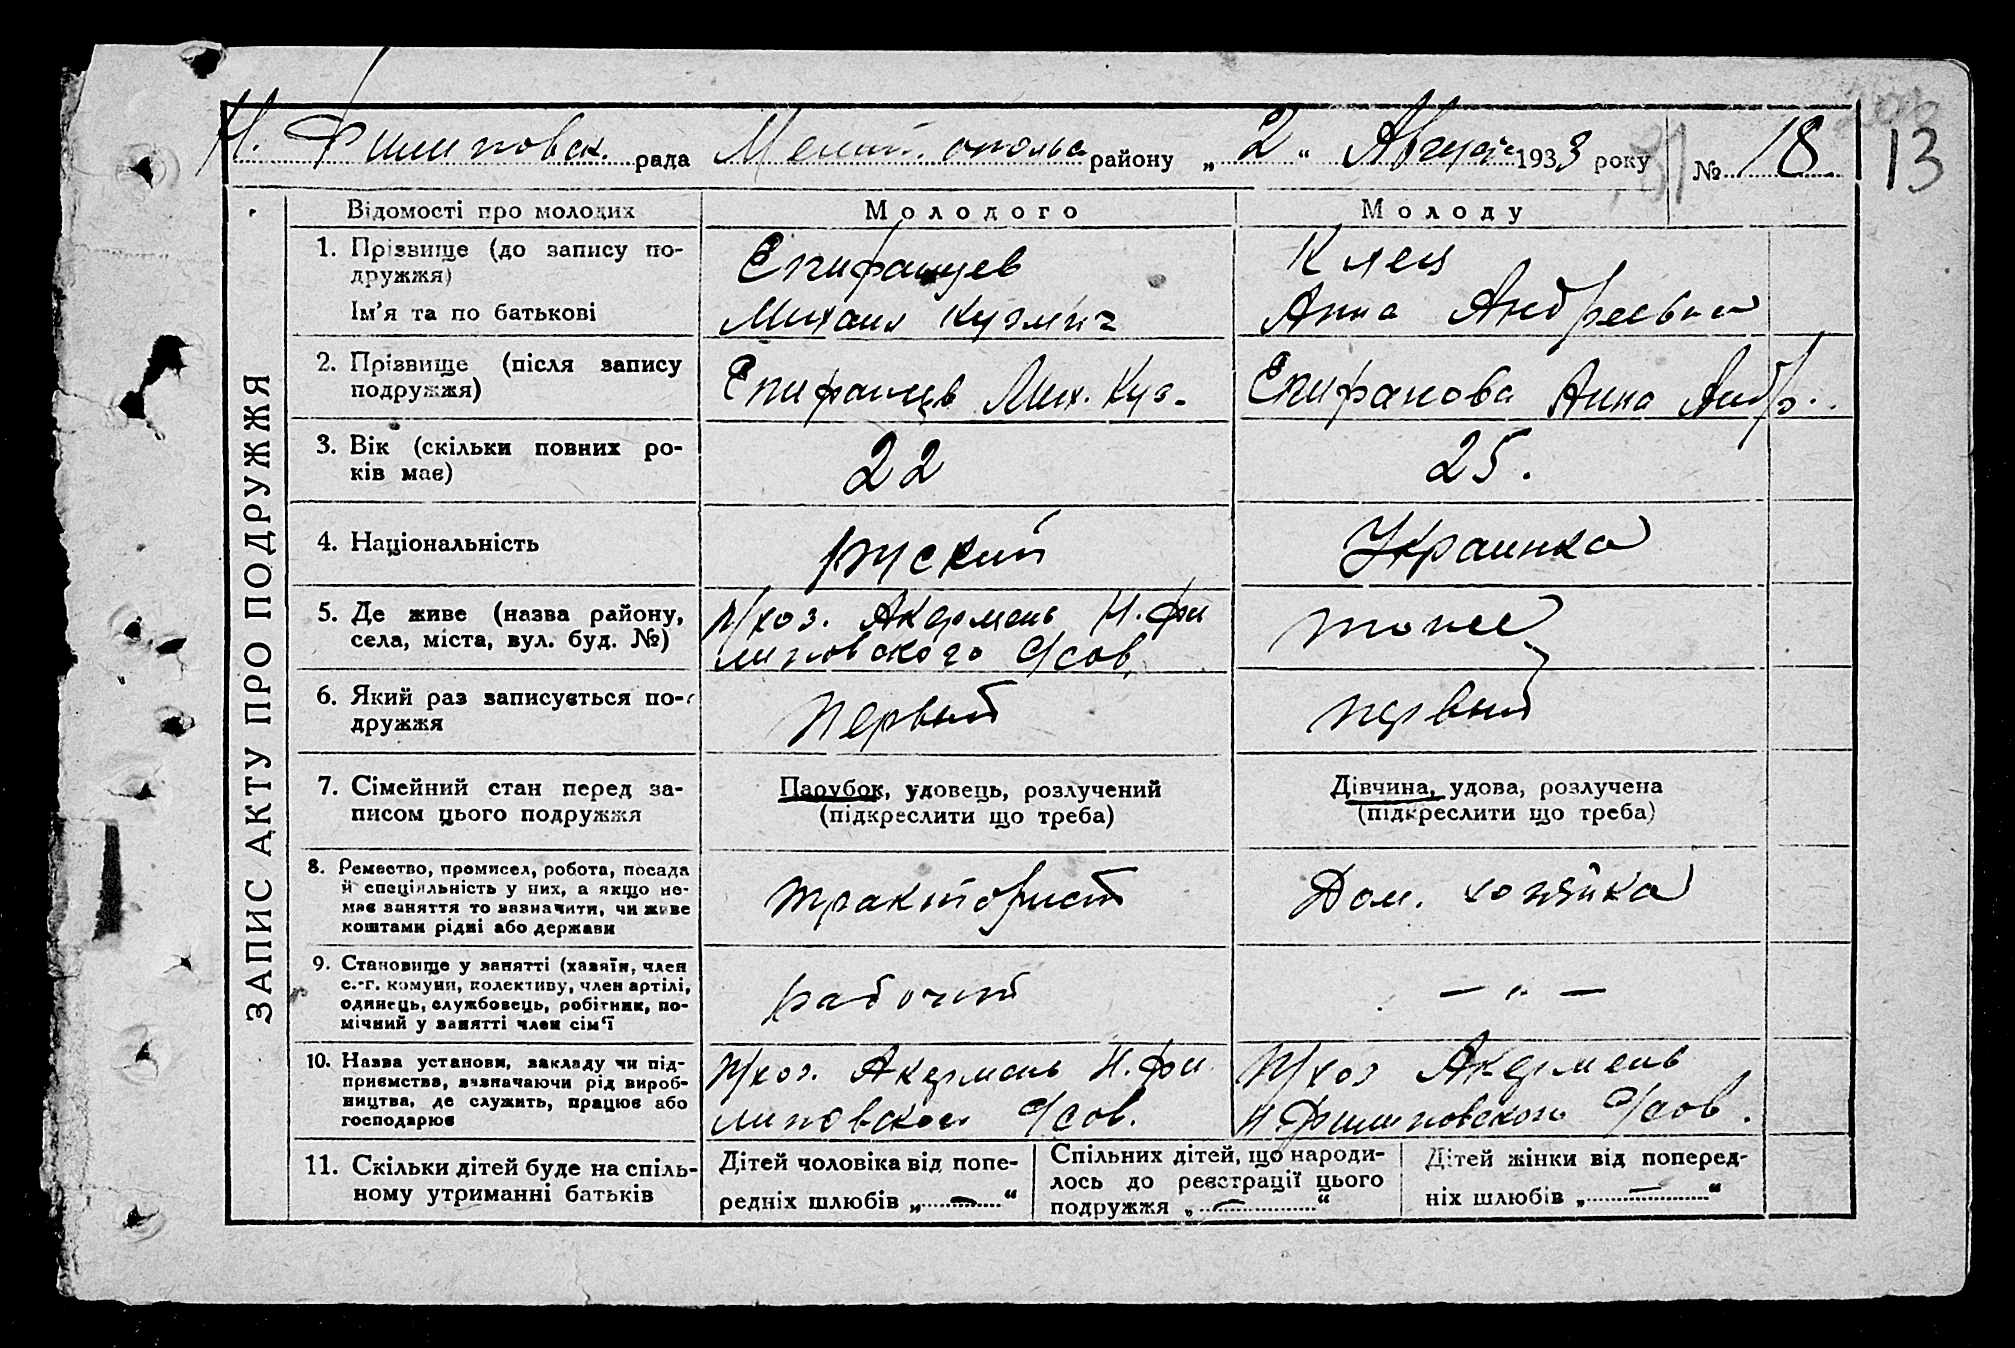 Н. Филиповск. рада Мелит. опольс району „ 2 “ Август 1933 року № 18 13
31
ЗАПИС АКТУ ПРО ПОДРУЖЖЯ
Відомості про молодих Молодого Молоду
1. Прізвище (до запису по-
дружжя)
Епифанцев Клец
Ім'я та по батькові Михаил Кузмич Анна Андреевна
2. Прізвище (після запису
подружжя)
Епифанцев Мих. Куз- Епифанова Анна Андр.
3. Вік (скільки повних ро-
ків має)
22 25.
4. Національність руский Украинка
5. Де живе (назва району,
села, міста, вул. буд. №)
п/хоз. Акермень Н. Фи
липовского С/сов.
тоже
6. Який раз записується по-
дружжя
первый первый
7. Сімейний стан перед за-
писом цього подружжя
Парубок, удовець, розлучений
(підкреслити що треба)
Дівчина, удова, розлучена
(підкреслити що треба)
8. Ремество, промисел, робота, посада
й спеціяльність у них, а якщо не-
має заняття то зазначити, чи живе
коштами рідні або держави
тракторист Дом. хозяйка
9. Становище у занятті (хазяїн, член
с.-г. комуни, колективу, член артілі,
одинець, службовець, робітник, по-
мічний у занятті член сім'ї
рабочий — „ —
10. Назва установи, закладу чи під-
приємства, зазначаючи рід вироб-
ництва, де служить, працює або
господарює
п/хоз. Акермень Н. Фи
липовского С/сов.
п/хоз Акермень
Н Филиповского С/сов.
11. Скільки дітей буде на спіль-
ному утриманні батьків
Дітей чоловіка від попе-
редніх шлюбів „ — “
Спільних дітей, що народи-
лось до реєстрації цього
подружжя „ — “
Дітей жінки від поперед-
ніх шлюбів „ — “